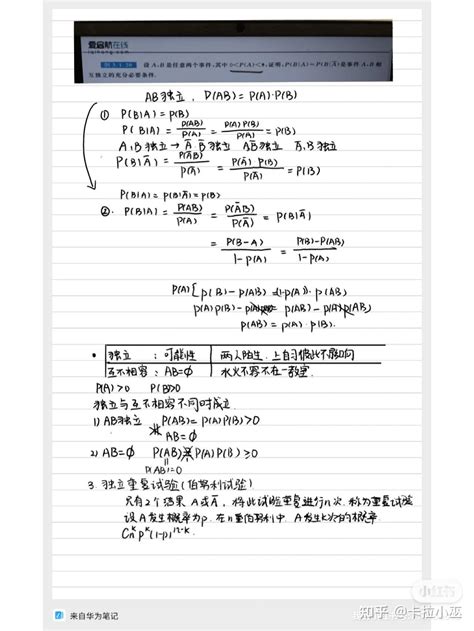 爱启航在线
iqihang.com
例1.1.26 设A,B是任意两个事件,其中0<P(A)<1,证明:P(B|A)=P(B|Ā)是事件A,B相
互独立的充分必要条件.
AB独立, P(AB)=P(A)·P(B)
① P(B|A)=P(B)
P(B|A)=P(AB)/P(A)=P(A)P(B)/P(A)=P(B)
A,B独立→Ā,B̄独立 AB̄独立 Ā,B独立
P(B|Ā)=P(ĀB)/P(Ā)=P(Ā)P(B)/P(Ā)=P(B)
P(B|A)=P(B|Ā)=P(B)
②. P(B|A)=P(AB)/P(A)=P(ĀB)/P(Ā)=P(B|Ā)
=P(B-A)/1-P(A)=P(B)-P(AB)/1-P(A)
P(A)[P(B)-P(AB)=(1-P(A))·P(AB)
P(A)P(B)-P(A)P(AB)=P(AB)-P(A)P(AB)
P(AB)=P(A)·P(B).
• 独立 : 可能性 两人陌生,上自习彼此不影响
互不相容: AB=∅ 水火不容不在一教室.
P(A)>0 P(B)>0
独立与互不相容不同时成立
1) AB独立 P(AB)=P(A)P(B)>0
AB=∅
2) AB=∅ P(AB)=P(A)P(B)≥0
P(AB)=0
3. 独立重复试验(伯努利试验)
只有2个结果A或Ā, 将此试验重复进行n次.称为重复试验
设A发生概率为P. 在n重伯努利中 A发生k次的概率
Cn^k P^k (1-P)^n-k.
小红书
来自华为笔记
知乎 @卡拉小巫